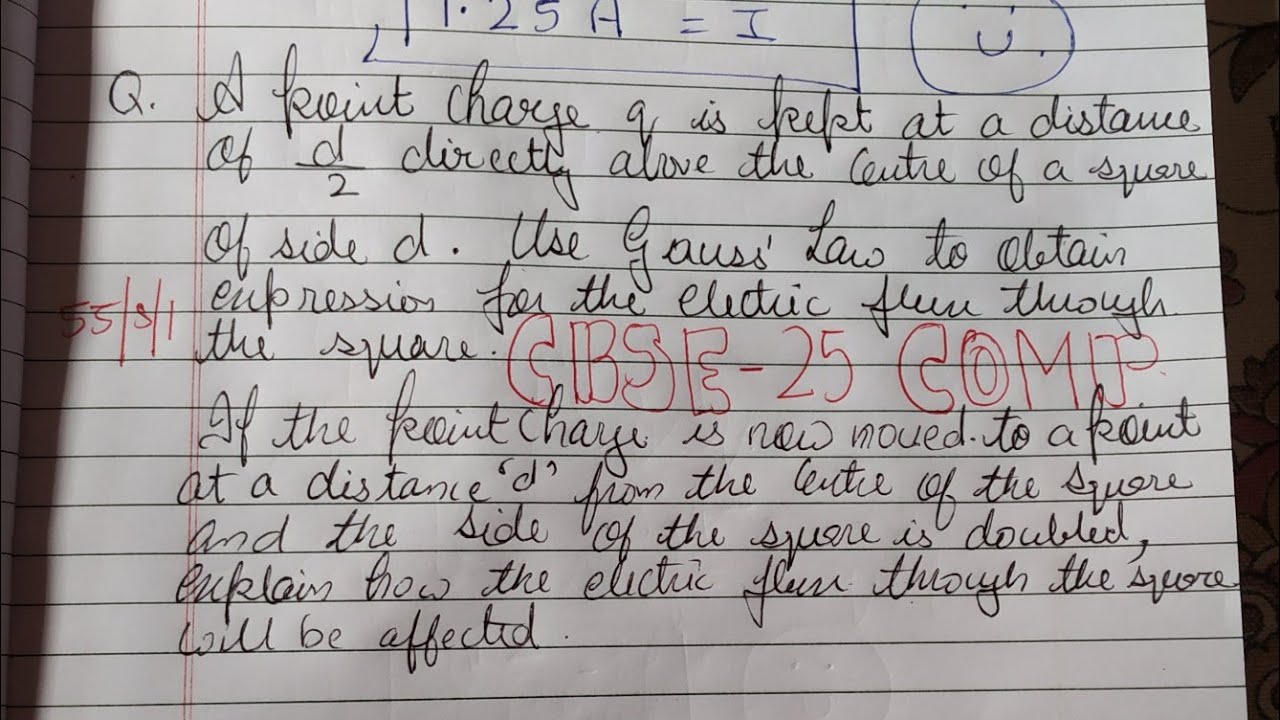 1.25 A = I
Q. A point charge q is kept at a distance
of d/2 directly above the centre of a square
of side d. Use Gauss' Law to obtain
expression for the electric flux through
55/S/1 the square. CBSE-25 COMP.
If the point charge is now moved to a point
at a distance 'd' from the centre of the square
and the side of the square is doubled,
explain how the electric flux through the square
will be affected.